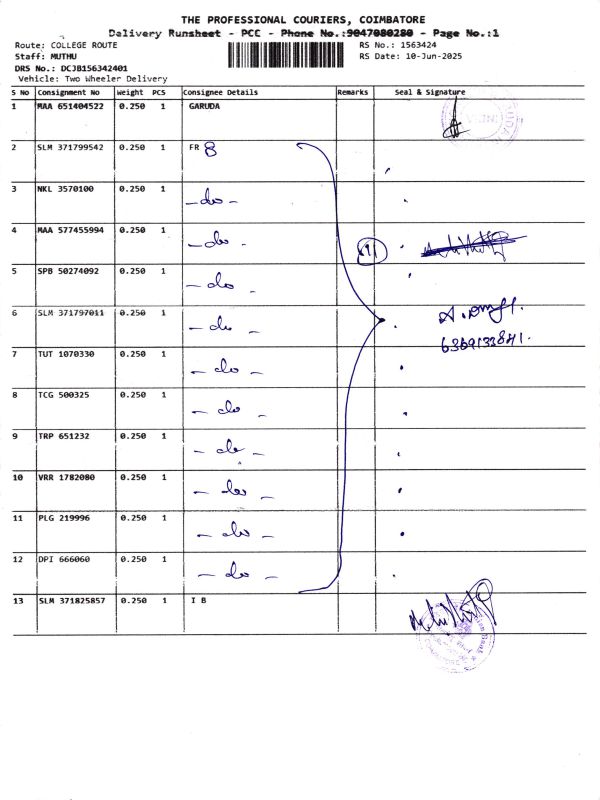 THE PROFESSIONAL COURIERS, COIMBATORE
Delivery Runsheet - PCC - Phone No.:9047080280 - Page No.:1
Route: COLLEGE ROUTE RS No.: 1563424
Staff: MUTHU RS Date: 10-Jun-2025
DRS No.: DCJB156342401
Vehicle: Two Wheeler Delivery
S No Consignment No Weight PCS Consignee Details Remarks Seal & Signature
1 MAA 651404522 0.250 1 GARUDA
2 SLM 371799542 0.250 1 FR 8
3 NKL 3570100 0.250 1 - do -
4 MAA 577455994 0.250 1 - do -
5 SPB 50274092 0.250 1 - do -
6 SLM 371797011 0.250 1 - do -
6369133841.
7 TUT 1070330 0.250 1 - do -
8 TCG 500325 0.250 1 - do -
9 TRP 651232 0.250 1 - do -
10 VRR 1782080 0.250 1 - do -
11 PLG 219996 0.250 1 - do -
12 DPI 666060 0.250 1 - do -
13 SLM 371825857 0.250 1 I B